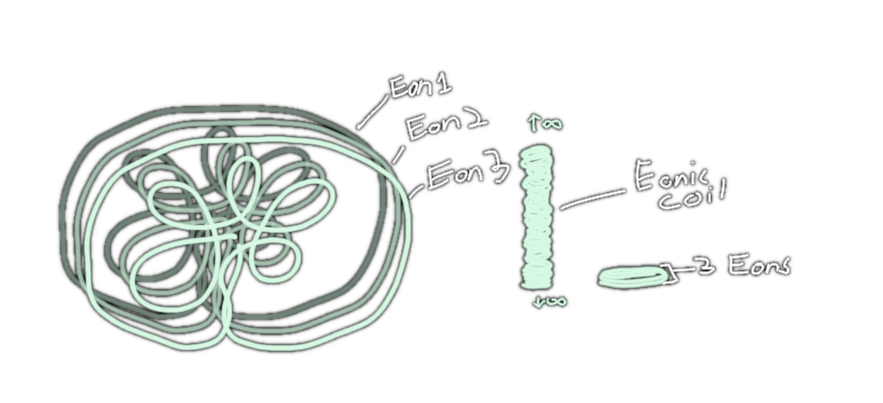 Eon 1
Eon 2
Eon 3
↑∞
Eonic
coil
3 Eons
↓∞